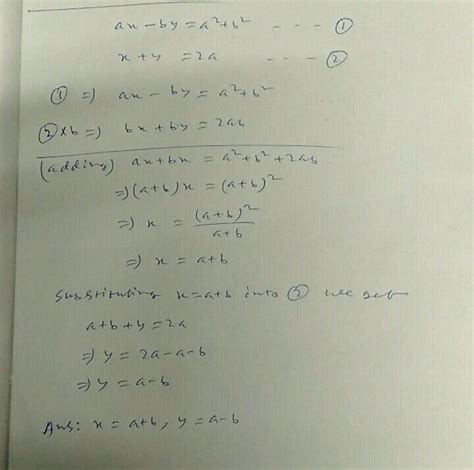 ax - by = a²+b² - - - - ①
x + y = 2a - - - ②
① => ax - by = a²+b²
②×b => bx + by = 2ab
(adding) ax+bx = a²+b²+2ab
=> (a+b)x = (a+b)²
=> x = (a+b)²/a+b
=> x = a+b
Substituting x=a+b into ② we get
a+b+y=2a
=> y = 2a-a-b
=> y = a-b
Ans: x = a+b, y = a-b